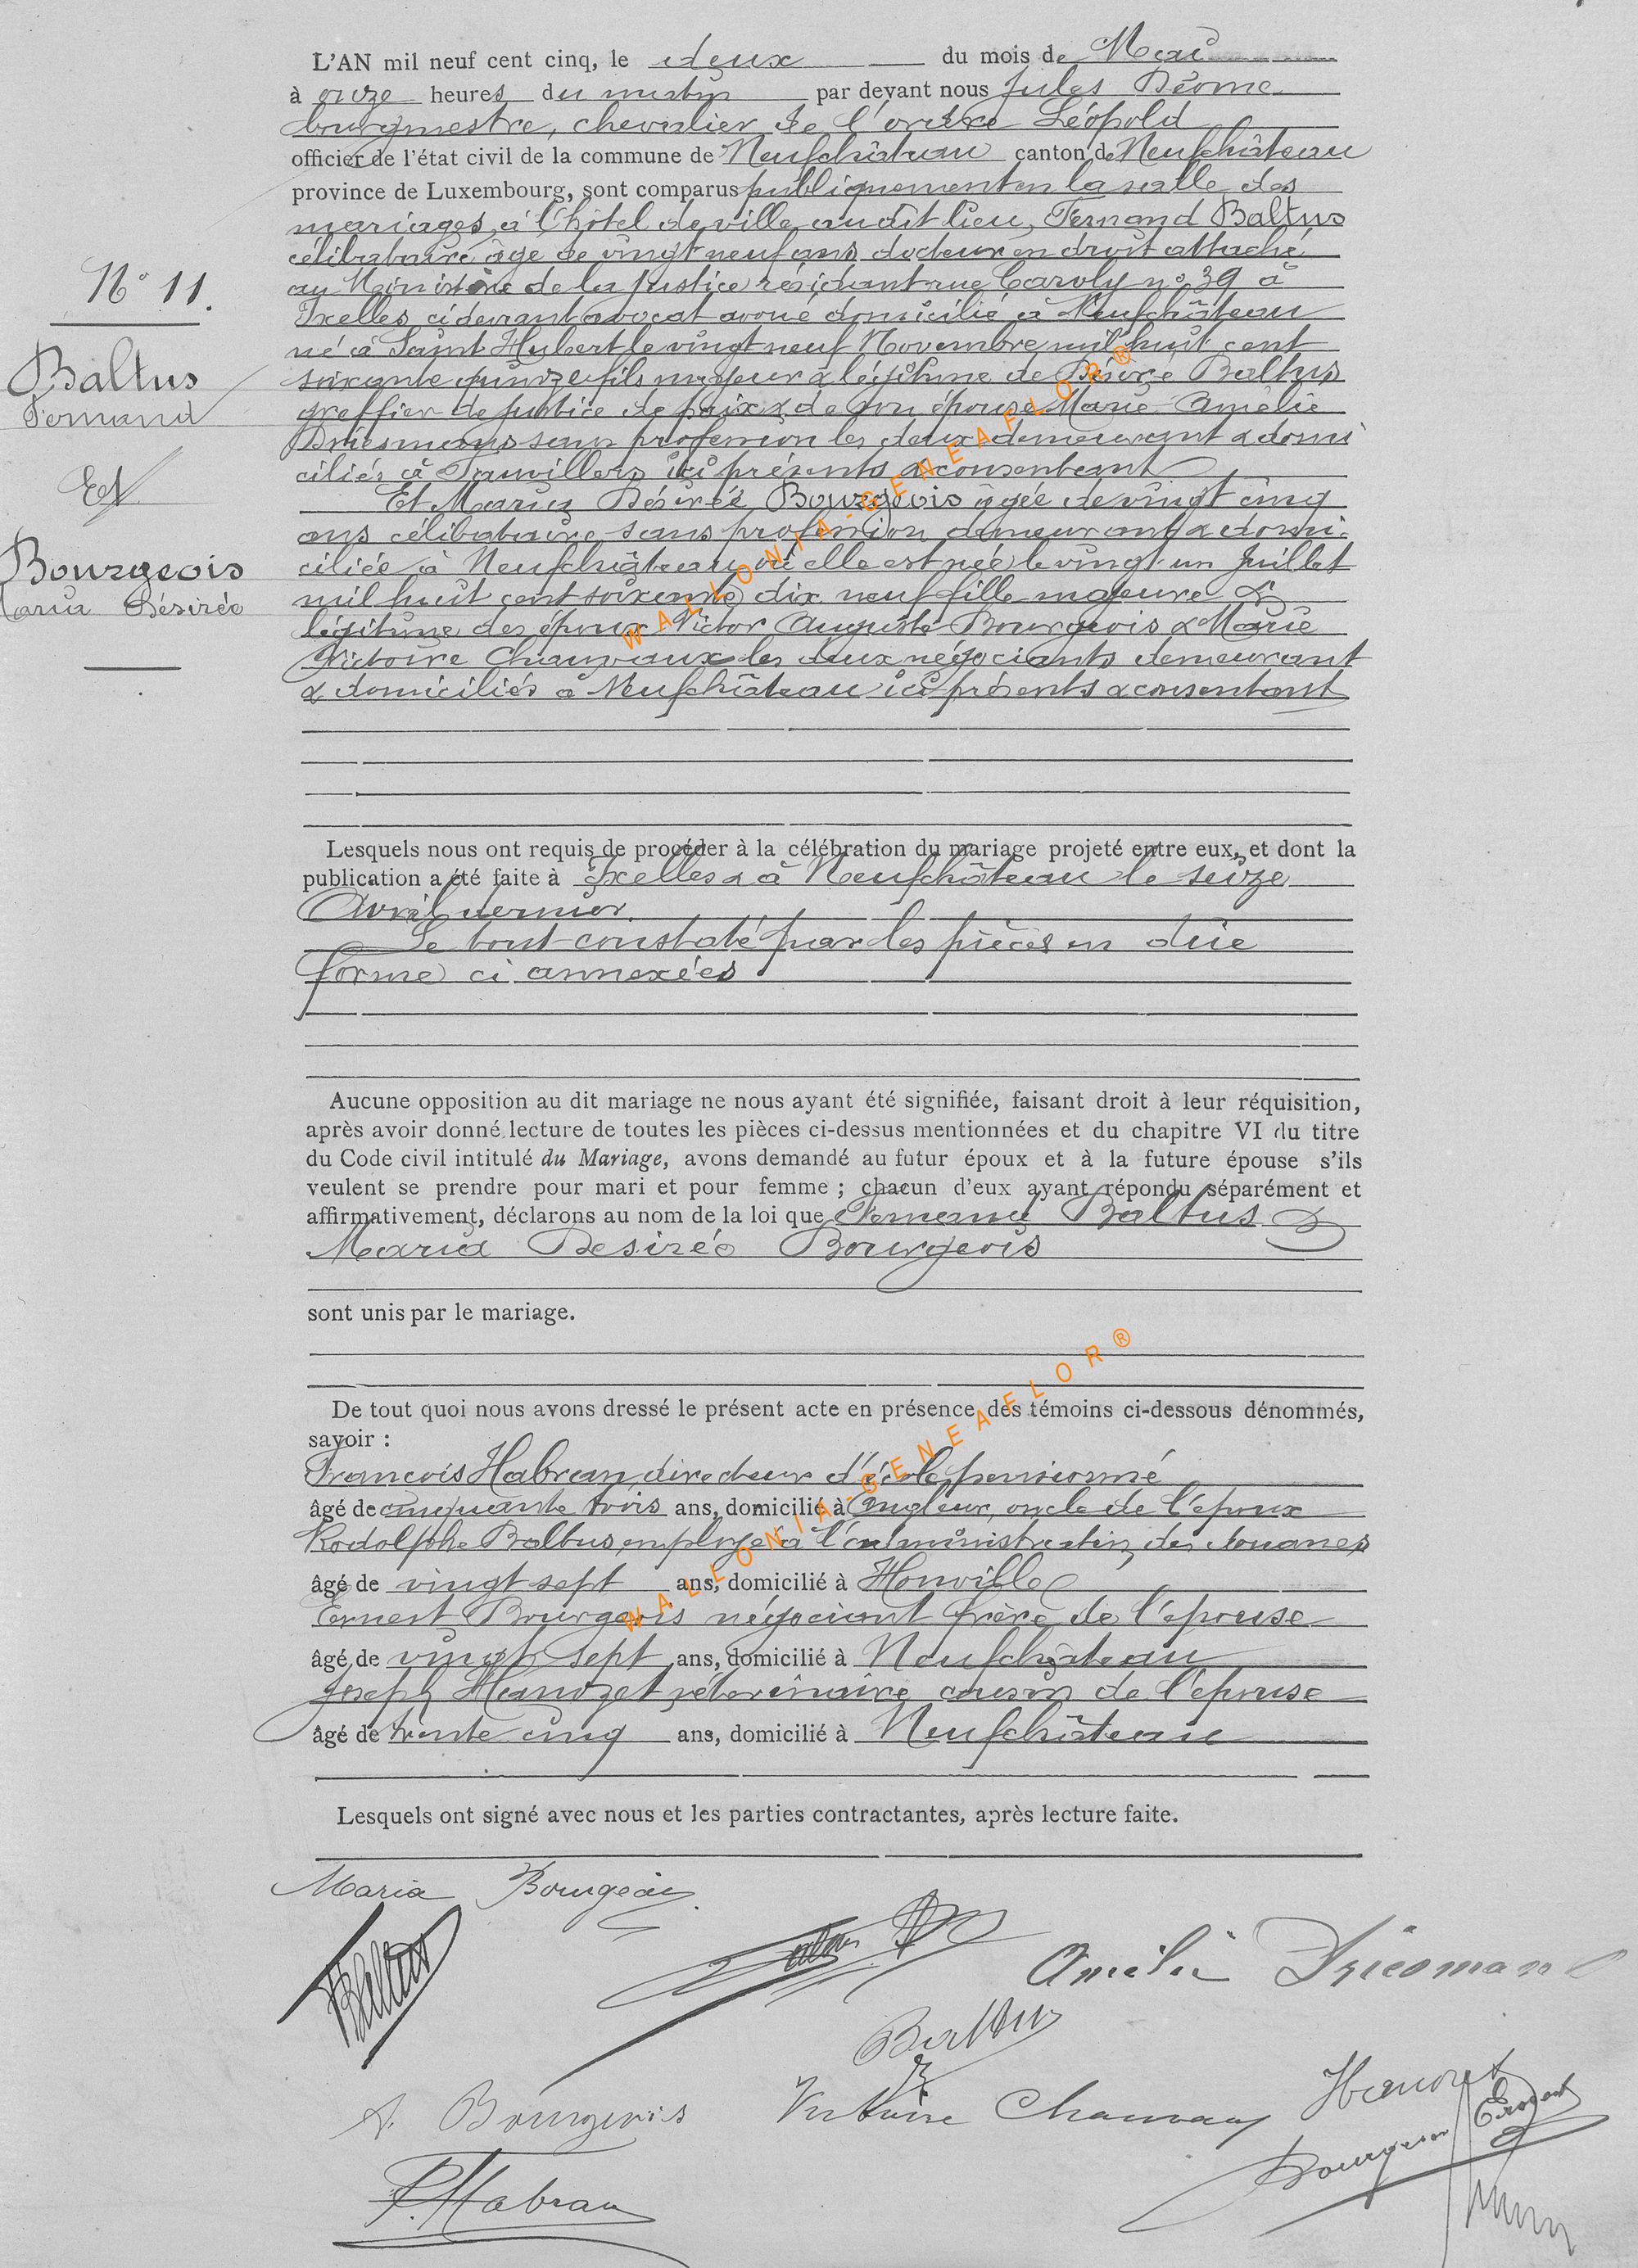 L'AN mil neuf cent cinq, le deux du mois de Mai
à onze heures du matin par devant nous Jules Déome
bourgmestre, chevalier de l'ordre Léopold
officier de l'état civil de la commune de Neufchâteau canton de Neufchâteau
province de Luxembourg, sont comparus publiquement en la salle des
mariages, à l'hôtel de ville audit lieu, Fernand Baltus
célibataire âgé de vingt neuf ans docteur en droit attaché
au Ministère de la Justice résidant rue Caroly n° 39 à
Ixelles ci devant avocat avoué domicilié à Neufchâteau
N° 11.
né à Saint Hubert le vingt neuf Novembre mil huit cent
soixante quinze fils majeur & légitime de Désiré Baltus
Baltus
Fernand
greffier de justice de paix & de son épouse Marie Amélie
Driesmans sans profession les deux demeurant & domi
ciliés à Fauvillers ici présents & consentant
Et
Et Maria Désirée Bourgeois âgée de vingt cinq
ans célibataire sans profession demeurant & domi-
Bourgeois
Maria Désirée
ciliée à Neufchâteau où elle est née le vingt un Juillet
mil huit cent soixante dix neuf fille majeure &
légitime des époux Victor Auguste Bourgeois & Marie
Victoire Chauvaux les deux négociants demeurant
& domiciliés à Neufchâteau ici présents & consentant
Lesquels nous ont requis de procéder à la célébration du mariage projeté entre eux, et dont la
publication a été faite à Ixelles & à Neufchâteau le seize
Avril dernier.
Le tout constaté par les pièces en due
forme ci annexées
Aucune opposition au dit mariage ne nous ayant été signifiée, faisant droit à leur réquisition,
après avoir donné lecture de toutes les pièces ci-dessus mentionnées et du chapitre VI du titre
du Code civil intitulé du Mariage, avons demandé au futur époux et à la future épouse s'ils
veulent se prendre pour mari et pour femme ; chacun d'eux ayant répondu séparément et
affirmativement, déclarons au nom de la loi que Fernand Baltus &
Maria Desirée Bourgeois
sont unis par le mariage.
De tout quoi nous avons dressé le présent acte en présence des témoins ci-dessous dénommés,
savoir :
François Habran directeur d'école pensionné
âgé de cinquante trois ans, domicilié à Angleur, oncle de l'époux
Rodolphe Baltus employé à l'administration des douanes
âgé de vingt sept ans, domicilié à Honville
Ernest Bourgeois négociant frère de l'épouse
âgé de vingt sept ans, domicilié à Neufchâteau
Joseph Hanozet vétérinaire cousin de l'épouse
âgé de trente cinq ans, domicilié à Neufchâteau
Lesquels ont signé avec nous et les parties contractantes, après lecture faite.
Maria Bourgeois
Baltus
Amélie Driesmans
Baltus
A. Bourgeois Victoire Chauvaux Hanozet
Bourgeois Ernest
F. Habran
WALLONIA-GENEAFLOR®
WALLONIA-GENEAFLOR®